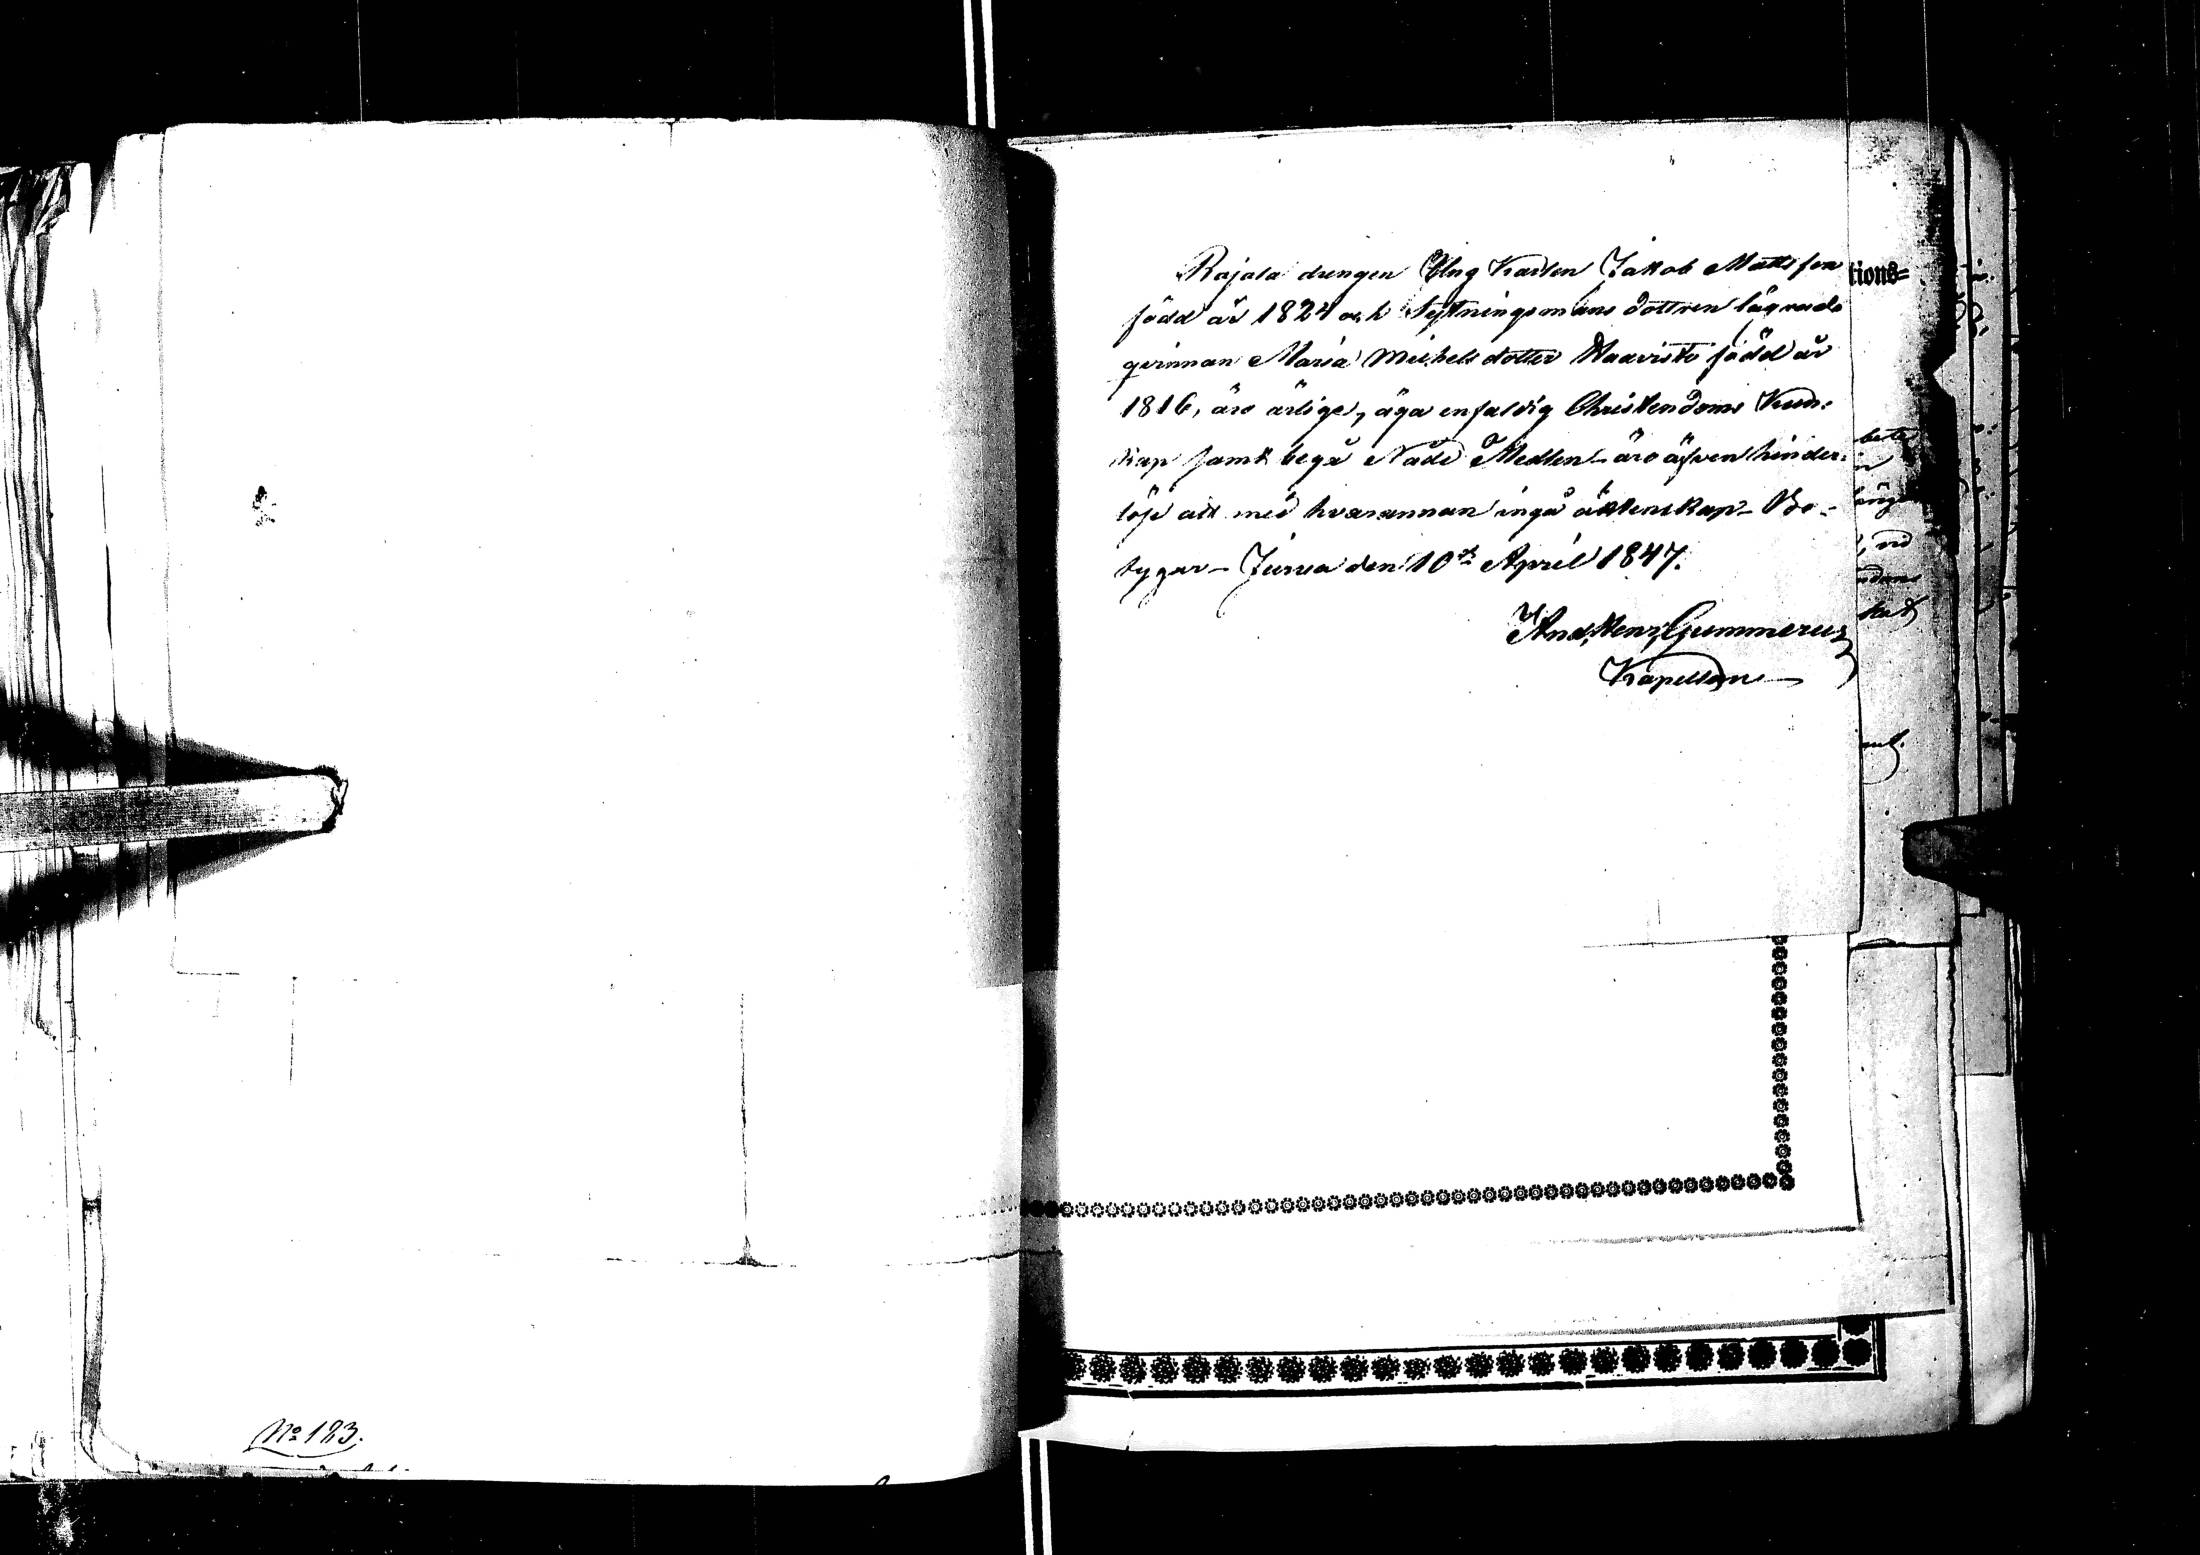 Rajala drengen Yng Karlen Jakob Mattsson
född år 1824 och Sytningsmans dottren lägrade
qvinnan Maria Michels dotter Haavisto född år
1816, äro ärlige, äga enfaldig Christendoms Kun-
skap samt begå Nåde Medlen - äro äfven hinder-
löse att med hvarannan ingå äktenskap - Be-
tygar - Jurva den 10de April 1847.
And. Henr. Gummerus
Kapellan
tions=
No 183.